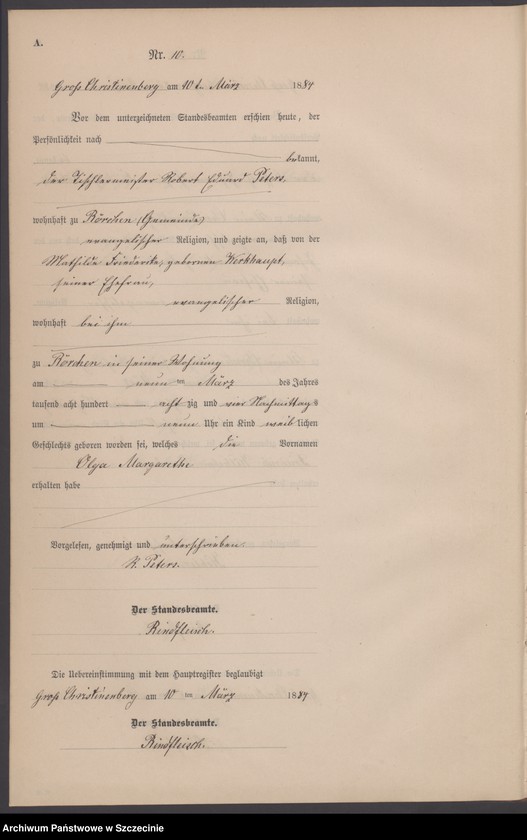 A.
Nr. 10.
Groß Christinenberg am 10t. März 1884
Vor dem unterzeichneten Standesbeamten erschien heute, der
Persönlichkeit nach
bekannt,
der Tischlermeister Robert Eduard Peters,
wohnhaft zu Rörchen (Gemeinde)
evangelischer Religion, und zeigte an, daß von der
Mathilde Friederike, gebornen Werkhaupt,
seiner Ehefrau,
evangelischer Religion,
wohnhaft bei ihm
zu Rörchen in seiner Wohnung
am neun ten März des Jahres
tausend acht hundert acht zig und vier Nachmittags
um neun Uhr ein Kind weib lichen
Geschlechts geboren worden sei, welches die Vornamen
Olga Margarethe
erhalten habe
Vorgelesen, genehmigt und unterschrieben.
R. Peters.
Der Standesbeamte.
Rindfleisch.
Die Uebereinstimmung mit dem Hauptregister beglaubigt
Groß Christinenberg am 10 ten März 1884
Der Standesbeamte.
Rindfleisch.
Archiwum Państwowe w Szczecinie